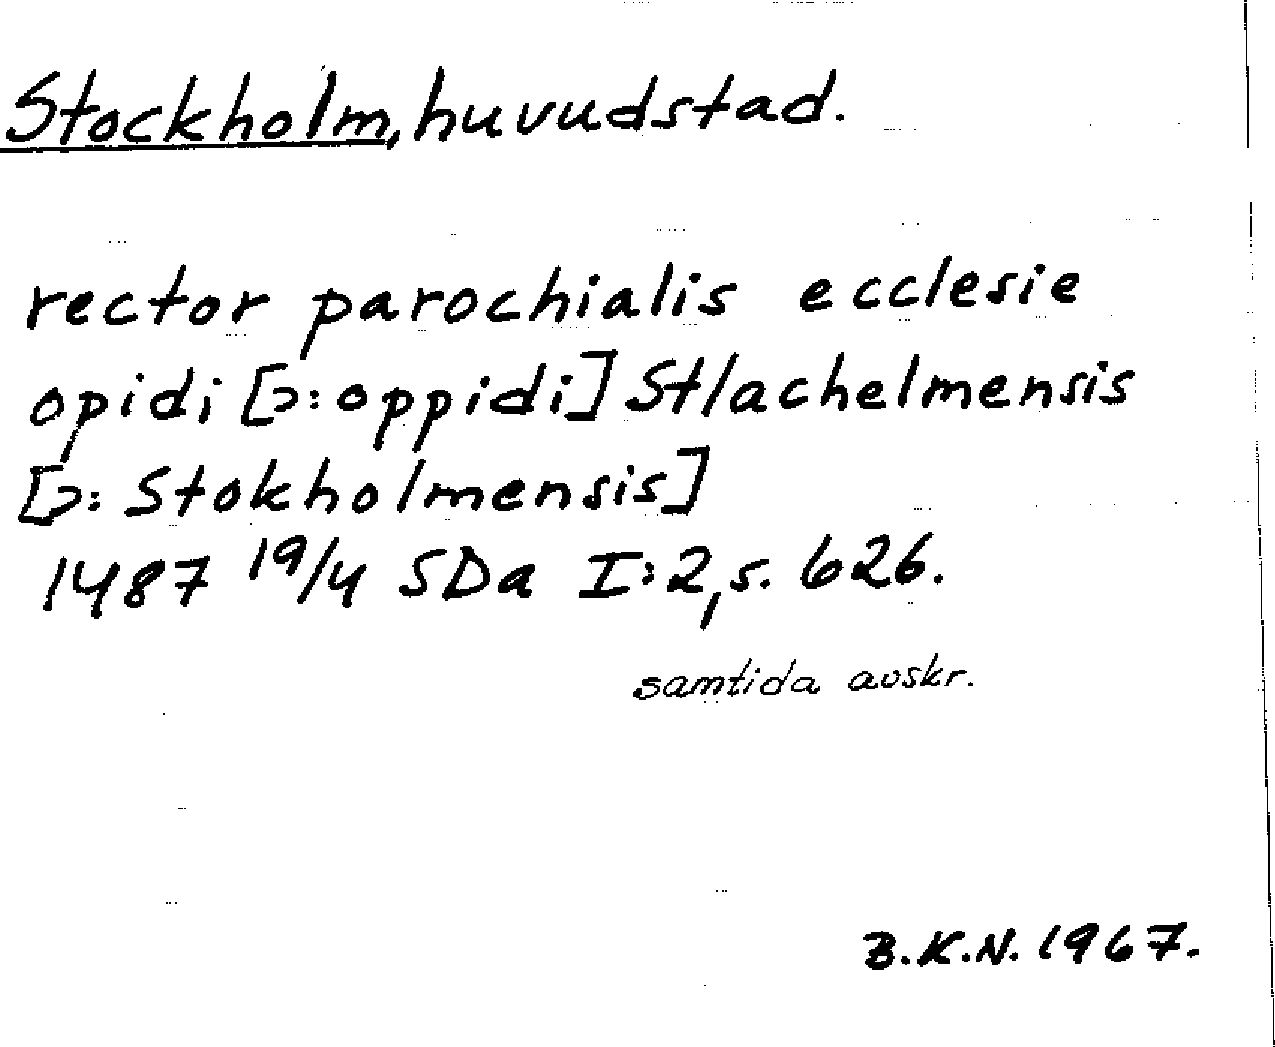 Stockholm, huvudstad.
rector parochialis ecclesie
opidi [ɔ: oppidi] St/achelmensis
[ɔ: Stokholmensis]
1487 19/4 SDa I:2, s. 626.
samtida avskr.
B.K.N. 1967.